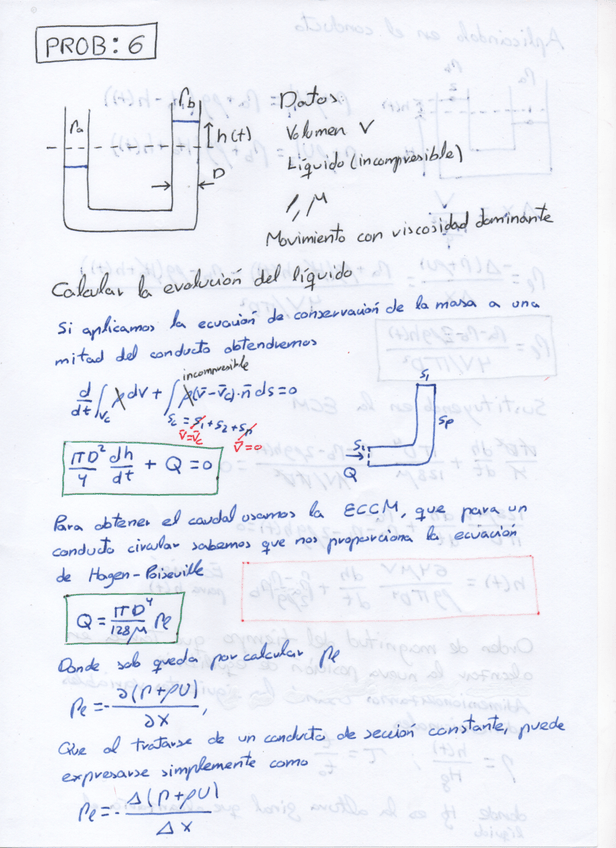 PROB: 6
Pa
Pb
h(t)
D
Datos
Volumen V
Líquido (incompresible)
ρ, μ
Movimiento con viscosidad dominante
Calcular la evolución del líquido
Si aplicamos la ecuación de conservación de la masa a una
mitad del conducto obtendremos
incompresible
d/dt ∫_Vc ρ dV + ∫ ρ(v̄ - v̄c)·n̄ ds = 0
Sc = S1 + S2 + Sp
v̄ = v̄c
v̄ = 0
S1
Sp
Q
πD²/4 dh/dt + Q = 0
Para obtener el caudal usamos la ECCM, que para un
conducto circular sabemos que nos proporciona la ecuación
de Hagen-Poiseville
Q = πD⁴/128μ Pe
Donde solo queda por calcular Pe
Pe = - ∂(P+ρU)/∂x,
Que al tratarse de un conducto de sección constante, puede
expresarse simplemente como
Pe = - Δ(P+ρU)/Δx